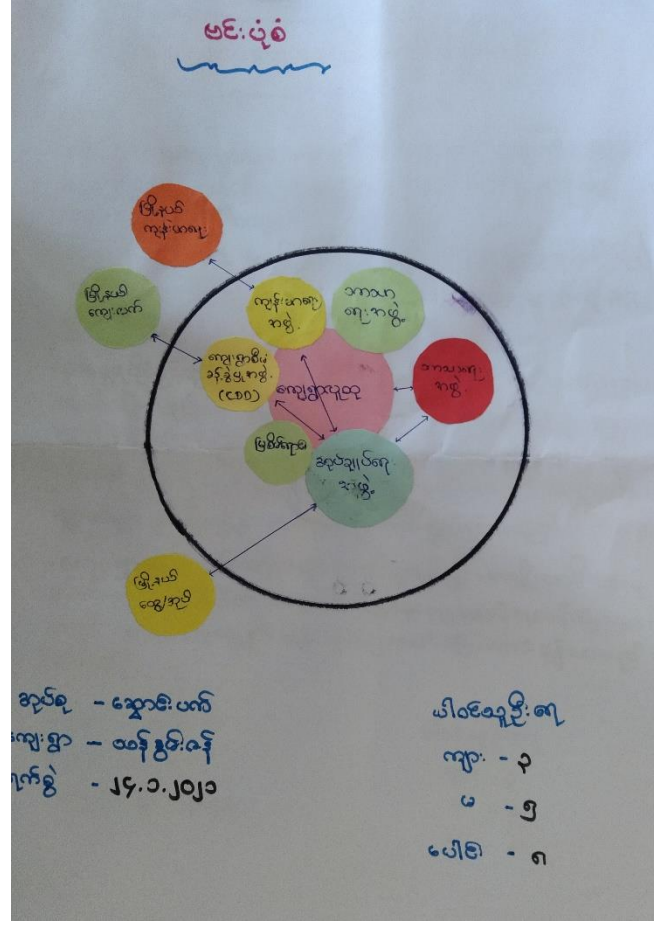 ဗင်းပုံစံ
မြို့နယ်
ကျန်းမာရေး
မြို့နယ်
ကျေးလက်
ကျန်းမာရေး
အဖွဲ့
ဘာသာ
ရေးအဖွဲ့
ကျေးရွာစီမံ
ခန့်ခွဲမှုအဖွဲ့
(CDD)
ကျေးရွာလူထု
ဘာသာရေး
အဖွဲ့
မြစိမ်းရောင်
အုပ်ချုပ်ရေး
အဖွဲ့
မြို့နယ်
ထွေ/အုပ်
အုပ်စု - ဆွောင်းပက်
ကျေးရွာ -
ရက်စွဲ - ၂၄.၁.၂၀၂၁
ပါဝင်သူဦးရေ
ကျား - ၃
မ - ၅
ပေါင်း - ၈